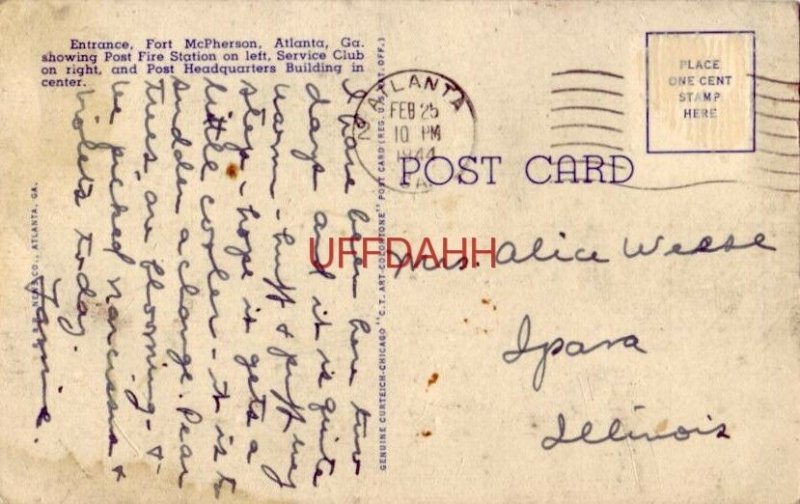 Entrance, Fort McPherson, Atlanta, Ga.
showing Post Fire Station on left, Service Club
on right, and Post Headquarters Building in
center.
ATLANTA
FEB 25
10 PM
1944
GA.
PLACE
ONE CENT
STAMP
HERE
POST CARD
I have been here two
days and it is quite
warm - huff & puff my
step - hope it gets a
little cooler - It is to
sudden a change. Pear
trees are blooming - &
we picked narcissus &
violets today.
Fannie.
UFFDAHH
Mrs. Alice Weese
Ipava
Illinois
GENUINE CURTEICH-CHICAGO "C.T. ART-COLORTONE" POST CARD (REG. U.S. PAT. OFF.)
NEWS CO., ATLANTA, GA.